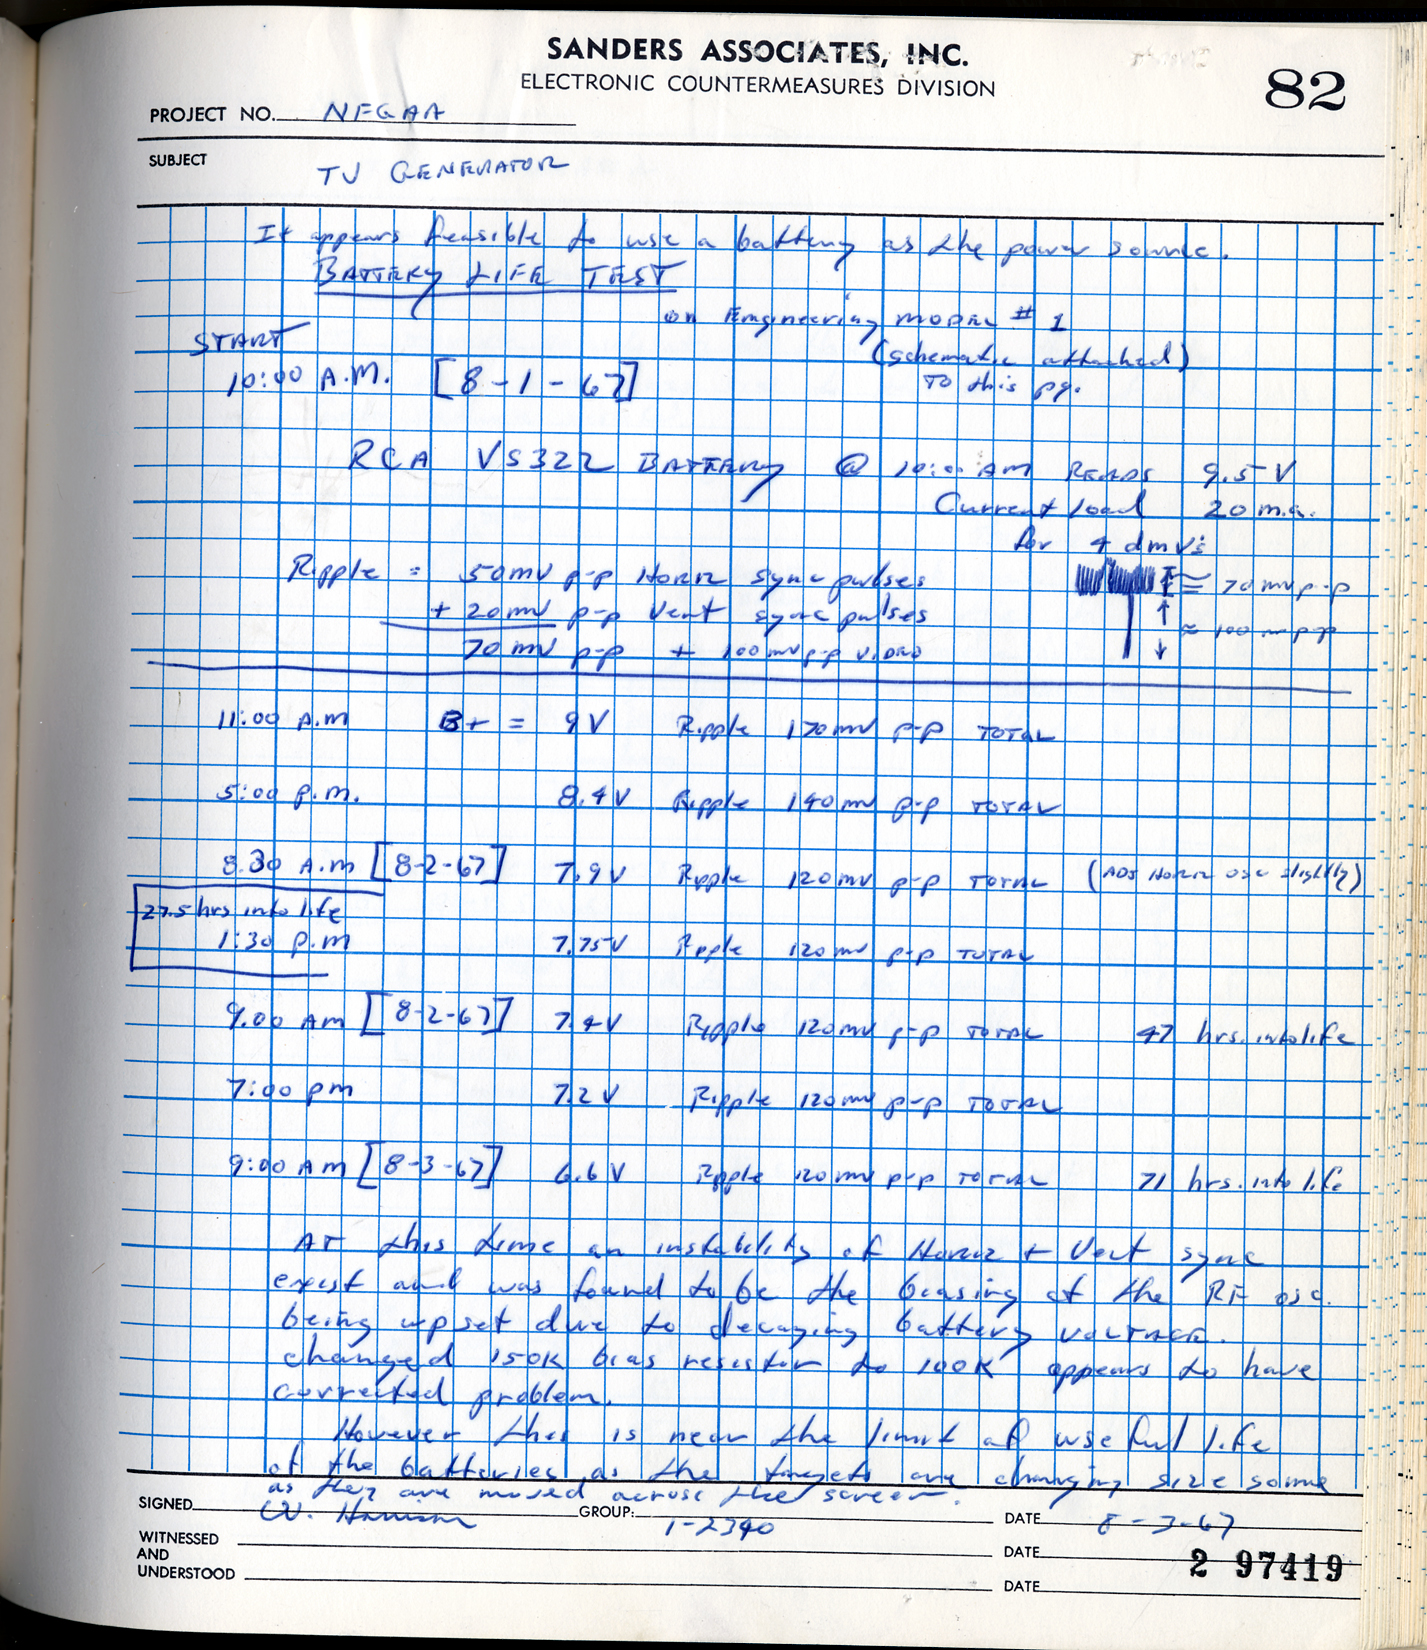 SANDERS ASSOCIATES, INC.
ELECTRONIC COUNTERMEASURES DIVISION
82
PROJECT NO. NFGAA
SUBJECT
TV GENERATOR
It appears feasible to use a battery as the power source.
BATTERY LIFE TEST
on Engineering MODEL # 1
START
(schematic attached)
10:00 A.M. [8-1-67]
TO this pg.
RCA VS322 BATTERY @ 10:00 AM READS 9.5 V
Current load 20 m.a.
for 4 dmv's
Ripple = 50mV p-p Horiz sync pulses
≈ 70 mV p-p
+ 20mV p-p Vert sync pulses
≈ 100 mV p-p
70 mV p-p + 100 mV p-p VIDEO
11:00 A.M B+ = 9V Ripple 170 mV p-p TOTAL
5:00 P.M. 8.4V Ripple 140 mV p-p TOTAL
8:30 A.M [8-2-67] 7.9V Ripple 120 mV p-p TOTAL (ADJ Horiz osc slightly)
27.5 hrs into life
1:30 P.M 7.75V Ripple 120mV p-p TOTAL
9:00 AM [8-2-67] 7.4V Ripple 120mV p-p TOTAL 47 hrs. into life
7:00 pm 7.2V Ripple 120mV p-p TOTAL
9:00 AM [8-3-67] 6.6V Ripple 120mV p-p TOTAL 71 hrs. into life
AT this time an instability of Horiz + Vert sync
exist and was found to be the biasing of the RF osc.
being upset due to decaying battery VOLTAGE.
changed 150K bias resistor to 100K appears to have
corrected problem.
However this is near the limit of useful life
of the batteries as the targets are changing size some
as they are moved across the screen.
SIGNED W. Harrison GROUP: 1-2340 DATE 8-3-67
WITNESSED
AND
UNDERSTOOD
DATE
2 97419
DATE